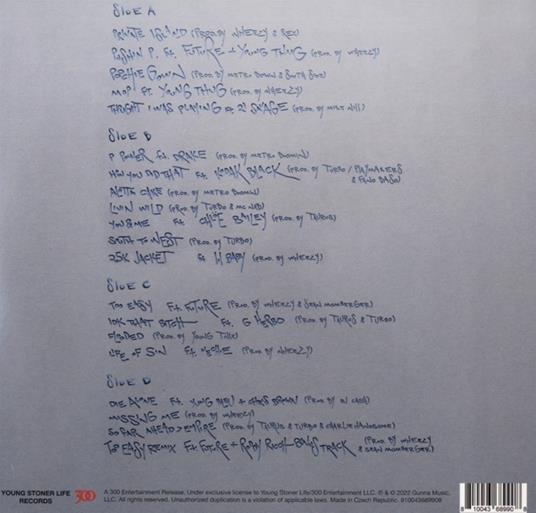 SIDE A
PRIVATE ISLAND (PROD. BY WHEEZY & 
PUSHIN P. Ft. FUTURE + YOUNG THUG (PROD. BY WHEEZY)
POOCHIE GOWN (PROD. BY METRO BOOMIN & SOUTH SIDE)
MOP Ft. YOUNG THUG (PROD. BY WHEEZY)
THOUGHT I WAS PLAYING Ft. 21 SAVAGE (PROD. BY MIKE WILL)
SIDE B
P POWER Ft. DRAKE (PROD. BY METRO BOOMIN)
HOW YOU DID THAT Ft. KODAK BLACK (PROD. BY TURBO / PLAYMAKERS
& FANO BASO)
ALOTTA CAKE (PROD. BY METRO BOOMIN)
LIVIN WILD (PROD. BY TURBO &
YOU & ME Ft. CHLOE BAILEY (PROD. BY TAURUS)
SOUTH TO WEST (PROD. BY TURBO)
25K JACKET Ft. LIL BABY (PROD. BY WHEEZY)
SIDE C
TOO EASY Ft. FUTURE (PROD. BY WHEEZY & SEAN MOMBERGER)
IDK THAT BITCH Ft. G HERBO (PROD. BY TAURUS & TURBO)
FLOODED (PROD. BY YOUNG
LIFE OF SIN Ft. NECHIE (PROD. BY WHEEZY)
SIDE D
DIE ALONE Ft. YUNG BLEU + CHRIS BROWN (PROD. BY
MISSING ME (PROD. BY WHEEZY)
SO FAR AHEAD > EMPIRE (PROD. BY TAURUS & TURBO & CHARLIE HANDSOME)
TOO EASY REMIX Ft. FUTURE + RODDY RICCH - BONUS TRACK (PROD. BY WHEEZY
& SEAN MOMBERGER)
YOUNG STONER LIFE
RECORDS
300
A 300 Entertainment Release. Under exclusive license to Young Stoner Life/300 Entertainment LLC. ℗ & © 2022 Gunna Music,
LLC. All rights reserved. Unauthorized duplication is a violation of applicable laws. Made in Czech Republic. 810043689908
8 10043 68990 8